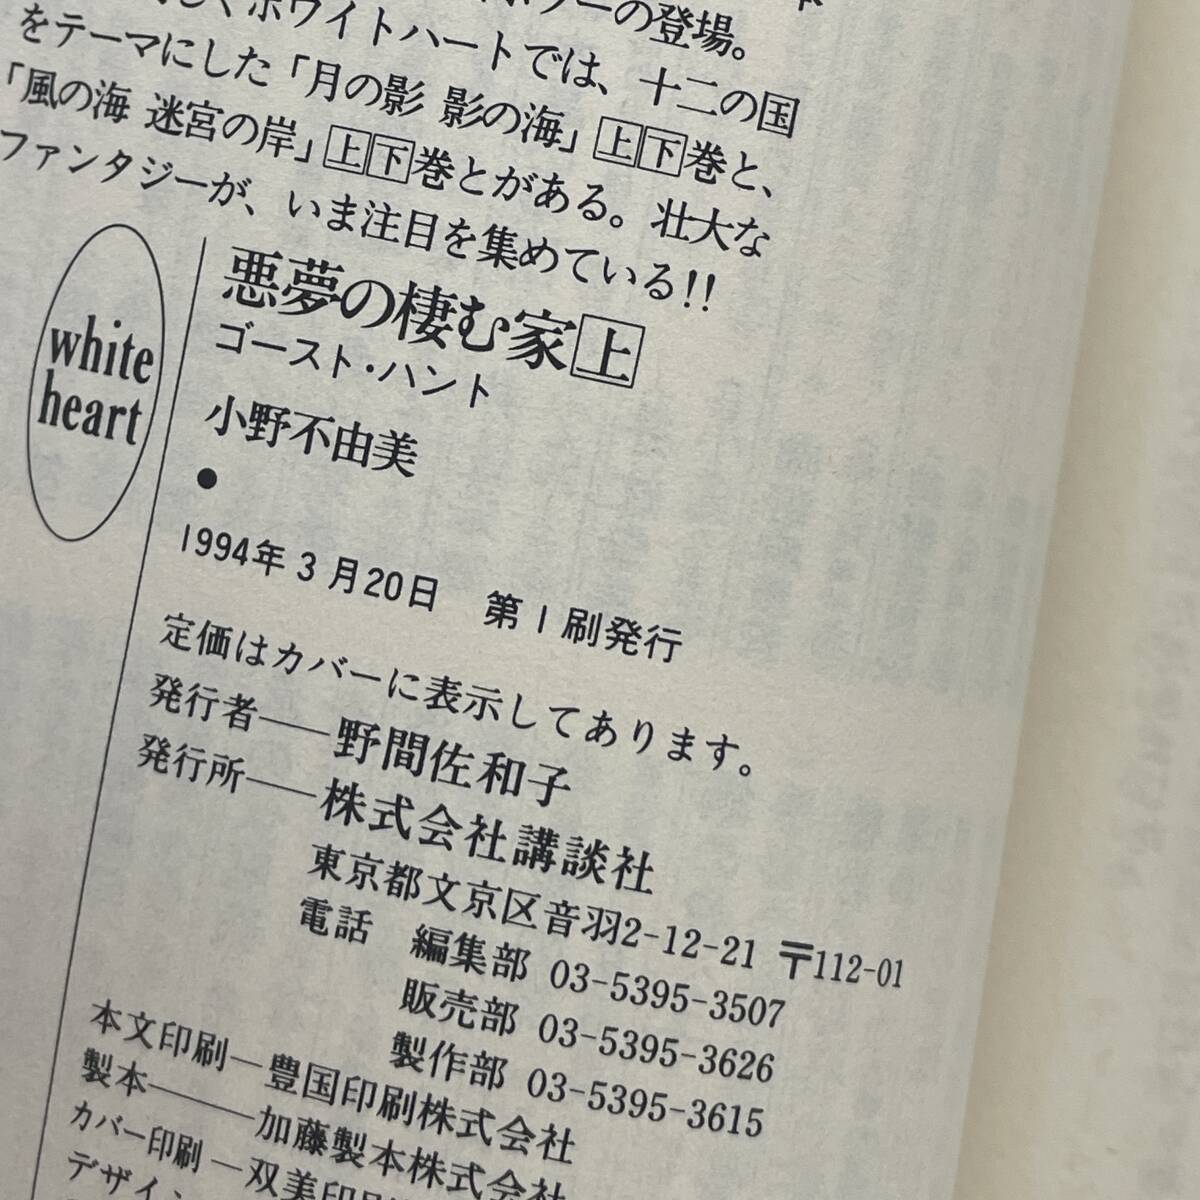 ホワイトハートでは、十二の国
の登場。
をテーマにした「月の影 影の海」上下巻と、
「風の海 迷宮の岸」上下巻とがある。壮大な
ファンタジーが、いま注目を集めている!!
white
heart
悪夢の棲む家 上
ゴースト・ハント
小野不由美
●
1994年3月20日 第1刷発行
定価はカバーに表示してあります。
発行者―野間佐和子
発行所―株式会社講談社
東京都文京区音羽2-12-21 〒112-01
電話 編集部 03-5395-3507
販売部 03-5395-3626
製作部 03-5395-3615
本文印刷―豊国印刷株式会社
製本―加藤製本株式会社
カバー印刷―双美印刷
デザイン